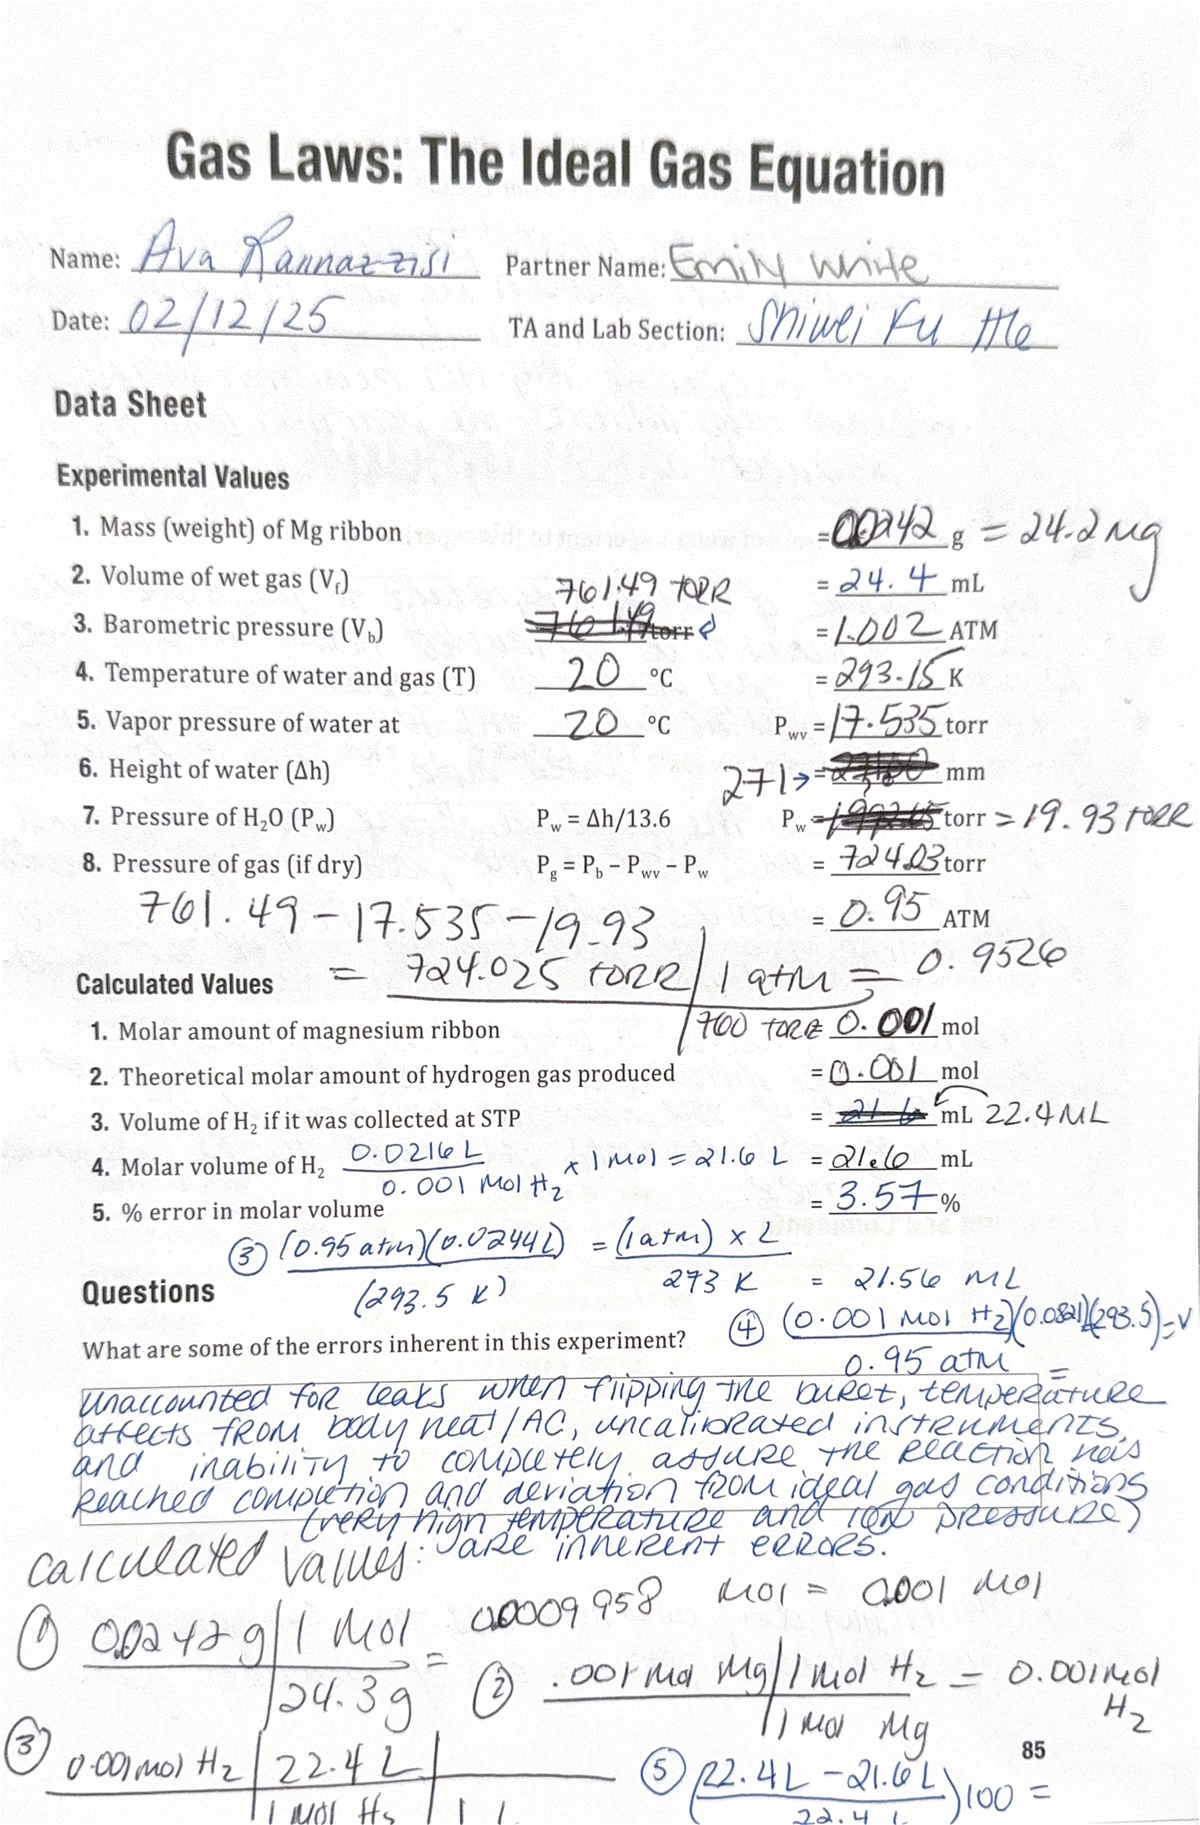 Gas Laws: The Ideal Gas Equation
Name: Ava Rannazzisi Partner Name: Emily White
Date: 02/12/25 TA and Lab Section: Shiwei Fu H6
Data Sheet
Experimental Values
1. Mass (weight) of Mg ribbon = 0.0242 g = 24.2 mg
2. Volume of wet gas (Vf) = 24.4 mL
761.49 TORR
3. Barometric pressure (Vb) 761.49 torr = 1.002 ATM
4. Temperature of water and gas (T) 20 °C = 293.15 K
5. Vapor pressure of water at 20 °C Pwv = 17.535 torr
6. Height of water (Δh) 271 → = mm
7. Pressure of H₂O (Pw) Pw = Δh/13.6 Pw = torr = 19.93 TORR
8. Pressure of gas (if dry) Pg = Pb – Pwv – Pw = 724.03 torr
761.49 - 17.535 - 19.93 = 0.95 ATM
= 724.025 TORR | 1 atm = 0.9526
Calculated Values
760 TORR
1. Molar amount of magnesium ribbon = 0.001 mol
2. Theoretical molar amount of hydrogen gas produced = 0.001 mol
3. Volume of H₂ if it was collected at STP = 21.6 mL 22.4 ML
4. Molar volume of H₂ 0.0216 L / 0.001 mol H₂ x 1 mol = 21.6 L = 21.6 mL
5. % error in molar volume = 3.57 %
③ (0.95 atm)(0.0244L) / (293.5 K) = (1 atm) x L / 273 K = 21.56 ML
Questions
④ (0.001 mol H₂)(0.0821)(293.5) / 0.95 atm = V
What are some of the errors inherent in this experiment? =
Unaccounted for leaks when flipping the buret, temperature
affects from body heat/AC, uncalibrated instruments,
and inability to completely assure the reaction has
reached completion and deviation from ideal gas conditions
(very high temperature and low pressure)
are inherent errors.
Calculated Values:
① 0.0242 g | 1 mol / 24.3 g = 0.0009958 mol = 0.001 mol
② .001 mol Mg | 1 mol H₂ / 1 mol Mg = 0.001 mol H₂
85
③ 0.001 mol H₂ | 22.4 L | / 1 mol H₂ | 1 L
⑤ (22.4L - 21.6L / 22.4 L) 100 =